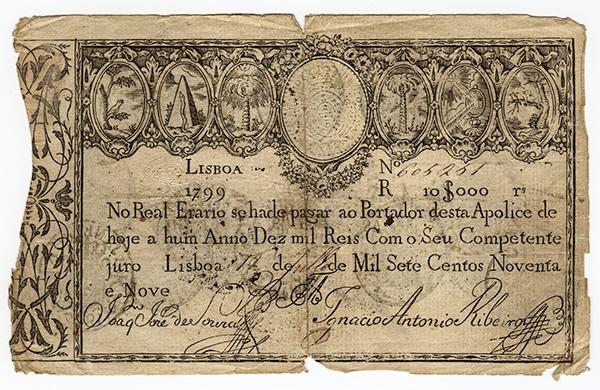 LISBOA Nº 605251
1799 R 10$000 rs
No Real Erario se hade pagar ao Portador desta Apolice de
hoje a hum Anno Dez mil Reis Com o Seu Competente
juro Lisboa 12 de de Mil Sete Centos Noventa
e Nove
Joaqm José de Souza Ignacio Antonio Ribeiro